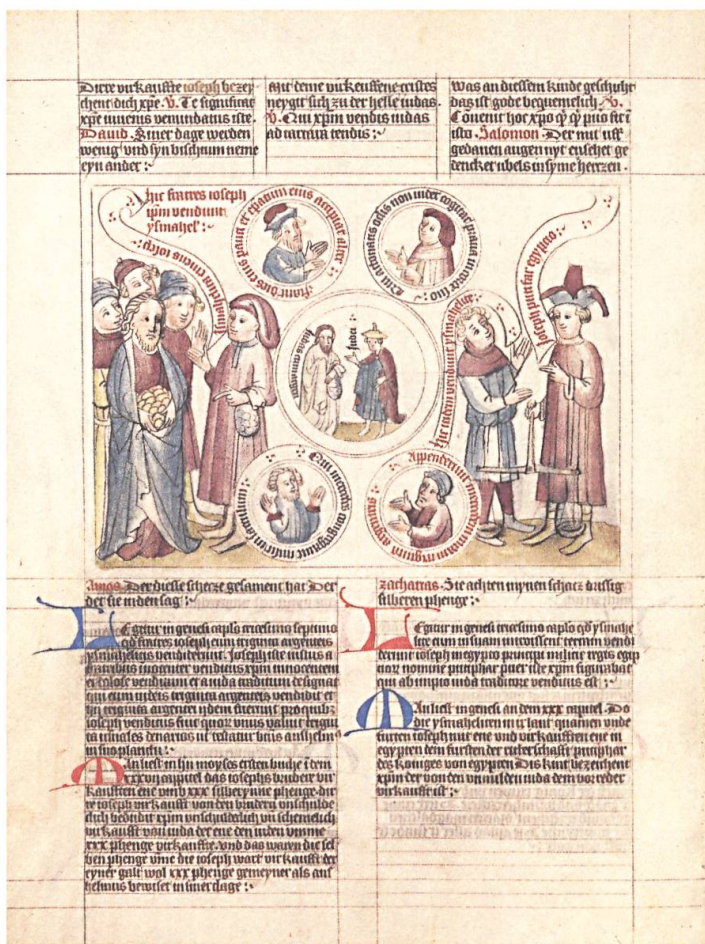 Dirre virkauffte ioseph bezey
chent dich xpe. V. Te significat
xpe iuuenis venundatus iste.
Dauid. Siner dage werden
wenig vnd syn vischtum neme
eyn ander :~
Mit deme virkeuffene cristes
neygit sich zu der helle iudas.
V. Qui xpm vendis iudas
ad tartara tendis :~
Was an diessem kinde geschuht
das ist gode bequemelich. V.
Conuenit hoc xpo
isto. Salomon. Der mit uff
gedanen augen nyt enschet ge
dencket ubels in syme herzen.
Hic fratres ioseph
ipm vendunt
ysmahel' :~
Fiant dies eius pauci et epatum eius accipiat alter
Qui attonitis oclis non videt cogitat praua in corde suo
iudei
Hic idem venditur ysmahelite
Joseph putifar egypto
Qui mercedes congregauit misit in saculum
Appenderunt mercedem meam triginta argenteis
Amos. Der diesse scherze gesament hat Der
der sie in den sag :~
Legitur in genesi caplo tricesimo septimo
qd fratres ioseph eum triginta argenteis
ysmahelitis vendiderunt. Joseph iste iustus a
fratribus innocenter venditus xpm innocentem
et dolose venditum et a iuda traditum designat
qui eum iudeis triginta argenteis vendidit et
hii triginta argentei idem fuerunt pro quibus
ioseph venditus fuit quor vnus valuit trigin
ta vsuales denarios ut testatur btus anshelm
in suo planctu :~
Man liest in hern moyses ersten buche i dem
xxxvii cappitel das iosephs bruder vir
kaufften ene vmb xxx silberynne phenge. dir
re ioseph virkaufft von den brudern vnschulde
clich bedudit xpm vnschuldeclich vn schemelich
virkaufft van iuda der ene den iuden vmme
xxx phenge virkaufte. vnd das waren die sel
ben phenge vme die ioseph wart virkaufft der
eyner galt wol xxx phenge gemeyner als ans
helmus bewiset in siner clage :~
Zacharias. Sie achten mynen schatz drissig
silberen phenge :~
Legitur in genesi tricesimo caplo qd ysmahe
lite cum
derunt ioseph in egypto principi milicie regis egip
cior nomine putiphar puer iste xpm figurabat
qui ab impio iuda traditore venditus est :~
Man liest in genesi an dem xxx capitel. Do
die ysmaheliten in ir lant quamen vnde
furten ioseph mit ene vnd virkaufften ene in
egypten dem fursten der ritherschafft putiphar
des koniges von egypten Dis kint bezeichent
xpm der von den vnmilden iuda dem vorreder
virkaufft ist :~